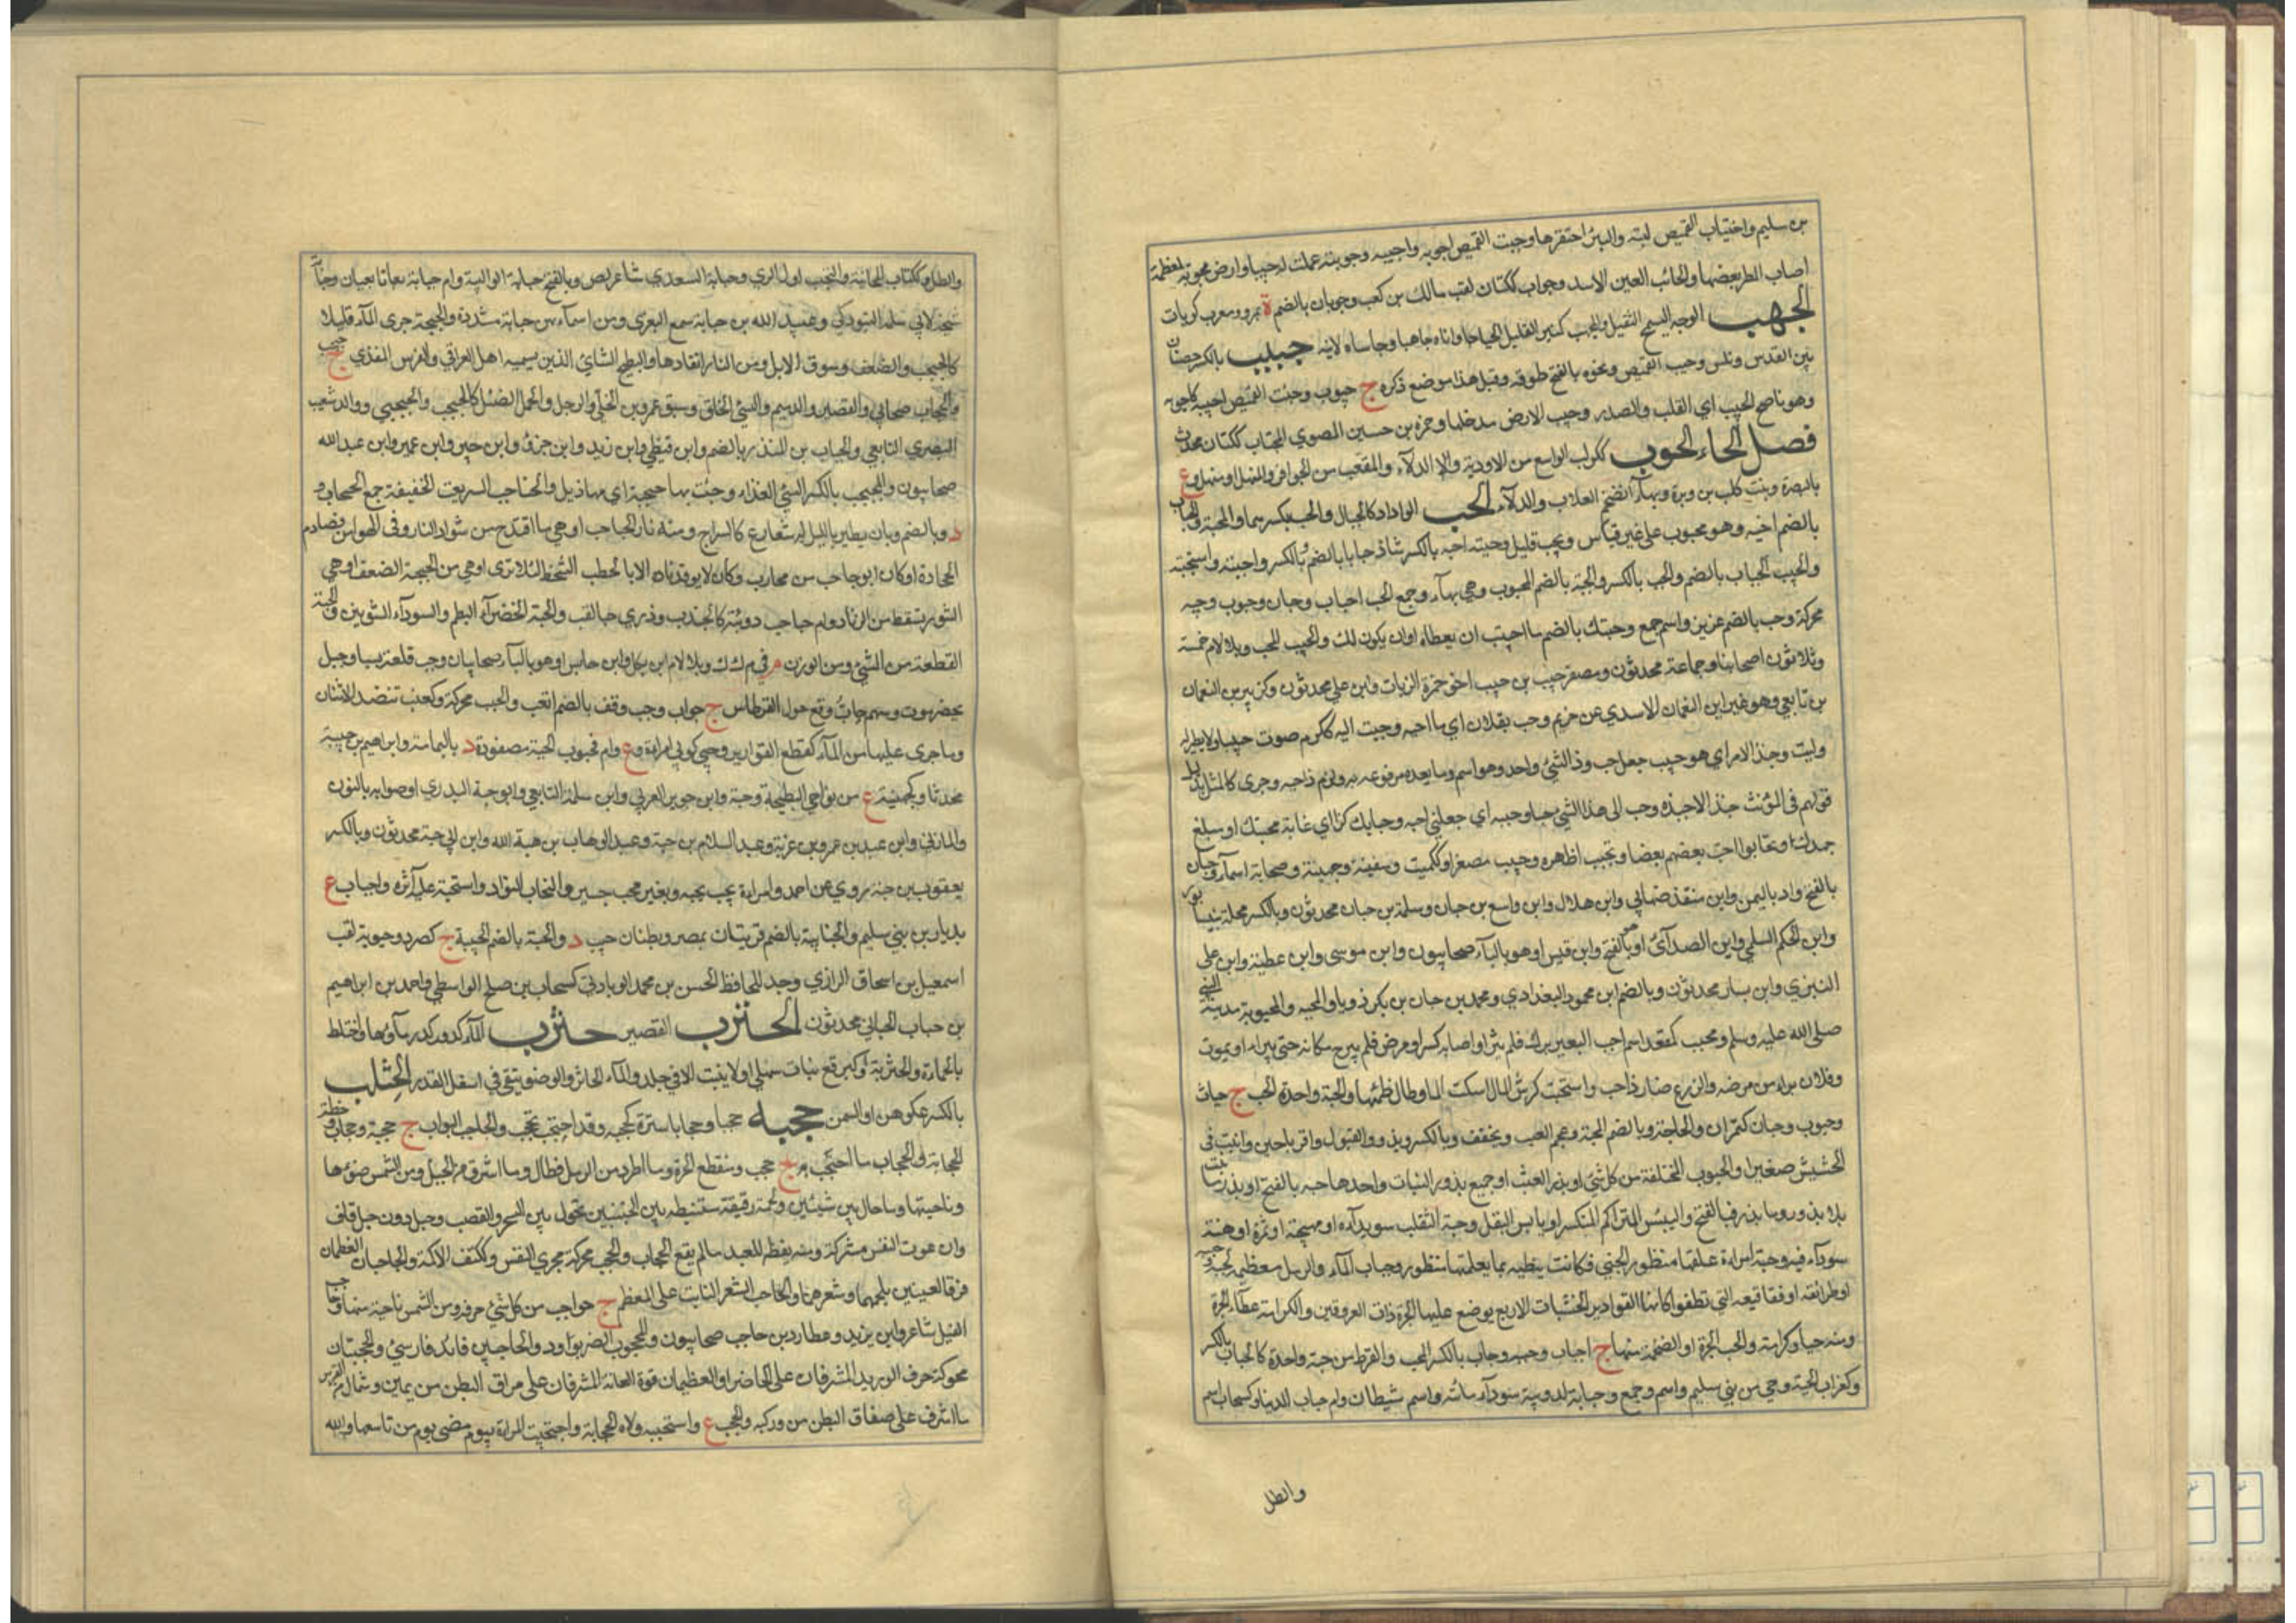 بن سليم واجتياب القميص لبسه والبئر احتفرها وجبت القميص اجوبه واجيبه وجوبته عملت له جيبا وارض مجوبة كمعظمة
اصاب المطر بعضها والجائب العين الاسد وجواب ككتان لقب مالك بن كعب وجوبان بالضم ة بمرو معرب كوبان
الجهب الوجه السمج الثقيل والمجهب كمنبر القليل الحيا واتاه جاهبا وجاهيا علانية جيب بالكسر حصنان
بين القدس ونابلس وجيب القميص ونحوه بالفتح طوقه وقيل هذا موضع ذكره ج جيوب وجبت القميص اجيبه كاجوبه
وهو ناصح الجيب اي القلب والصدر وجيب الارض مدخلها وحمزة بن حسين المصري الجياب ككتان محدث
فصل الحاء الحوب ككوكب الواسع من الاودية والدلاء والمقعب من الحوافر والمنهل او منهل وع
بالبصرة وبنت كلب بن وبرة وبهاء اضخم العلاب والدلاء الحب الوداد كالحباب والحب بكسرهما والمحبة والحباب
بالضم احبه وهو محبوب على غير قياس ومحب قليل وحببته احبه بالكسر شاذ حبا بالضم وبالكسر واحببته واستحببته
والحبيب الحباب بالضم والحب بالكسر والحبة بالضم المحبوب وهي بهاء وجمع الحب احباب وحبان وحبوب وحببة
محركة وحب بالضم عزيز واسم جمع وحبتك بالضم ما احببت ان يعطاه او ان يكون لك والحبيب المحب وبلا لام خمسة
وثلاثون صحابيا وجماعة محدثون ومصغر حبيب بن حبيب اخو حمزة الزيات وابن علي محدثون وكزبير بن النعمان
بن تابعي وهو غير ابن النعمان الاسدي عن خريم وحب بفلان اي ما احبه وحببت اليه ككرم صرت حبيبا ولا نظير له
وليت وحبذا الامر اي هو حبيب جعل حب وذا كشئ واحد وهو اسم وما بعده مرفوع به ولزم ذا حب وجرى كالمثل بدليل
قولهم في المؤنث حبذا لا حبذه وحب الى هذا الشئ حبا وحببه اي جعلني احبه وحبابك كذا اي غاية محبتك او مبلغ
جهدك وتحابوا احب بعضهم بعضا وتحبب اظهره وحبيب مصغرا وككميت وسفينة وجهينة وصحابة اسماء وحبان
بالفتح واد باليمن وابن منقذ صحابي وابن هلال وابن واسع بن حبان وسلمة بن حبان محدثون وبالكسر محلة بنيسابور
وابن الحكم السلمي وابن الصدائي او بالفتح وابن قيس او هو بالياء صحابيون وابن موسى وابن عطية وابن علي
العنزي وابن يسار محدثون وبالضم ابن محمود البغدادي ومحمد بن حبان بن بكر رويا والمحبة والمحبوبة مدينة النبي
صلى الله عليه وسلم ومحبب كمقعد اسم احب البعير برك فلم يثر او اصابه كسر او مرض فلم يبرح مكانه حتى يبرا او يموت
وفلان برا من مرضه والزرع صار ذا حب واستحبت كرش المال امسكت الما وطال ظمئها والحبة واحدة الحب ج حبات
وحبوب وحبان كتمران والحاجة وبالضم المحبة وعجم العنب ويخفف وبالكسر وبذور البقول والرياحين ونبت في
الحشيش صغير او الحبوب المختلفة من كل شئ او بذر العشب او جميع بذور النبات واحدها حبة بالفتح او بذر ما نبت
بلا بذر وما بذر فبالفتح واليبيس المتراكم المتكسر او يابس البقل وحبة القلب سويداؤه او مهجته او ثمرته او هنة
سوداء فيه وحبة امراة علقها منظور الجني فكانت تطبب بما يعلمها منظور وحباب الماء والرمل معظمه كحببه وحببه
او طرائقه او فقاقيعه التي تطفو كانها القوارير الخشبات الاربع يوضع عليها الجرة ذات العروتين والكرامة غطاء الجرة
ومنه حبا وكرامة والحب الجرة او الضخمة منها ج احباب وحببة وحباب بالكسر المحب والقرط من حبة واحدة كالحباب بالكسر
وكغراب الحية وحي من بني سليم واسم وجمع وحبابة لدويبة سوداء مائية واسم شيطان وام حباب الدنيا وكسحاب اسم
والطل
والطل وككتاب المحابة والتحبب اول الري وحبابة السعدي شاعر لص وبالفتح حبابة الوالبية وام حبابة تابعيتان وحبابة
شيخة لابي سلمة التبوذكي وعبيد الله بن حبابة سمع البغوي ومن اسمائهن حبابة مشددة والحبحبة جرى الماء قليلا
كالحبحب والضعف وسوق الابل ومن النار اتقادها والبطيخ الشامي الذي يسميه اهل العراق الرقي والفرس الهندي ج حبحب
والحبحاب صحابي والقصير والدميم والسئ الخلق وسيف عمرو بن الخلي والرجل والجمل الضئيل كالحبحب والحبحبي ووالد شعيب
البصري التابعي والحباب بن المنذر بالضم وابن قيظي وابن زيد وابن جزء وابن جبير وابن عمير وابن عبد الله
صحابيون والمحبب بالكسر السئ الغذاء وجئت بها حبحبة اي مهازيل والحباحب السريعة الخفيفة جمع الحبحاب و
د وبالضم ذباب يطير بالليل له شعاع كالسراج ومنه نار الحباحب او هي ما اقتدح من شرر النار في الهواء من تصادم
الحجارة او كان ابو حباحب من محارب وكان لا يوقد ناره الا بالحطب الشخت لئلا ترى او هي من الحبحبة الضعف او هي
الشرر يسقط من الزناد وام حباحب دويبة كالجندب وذرى حبا لقب والحبة الخضراء البطم والسوداء الشونيز والحبة
القطعة من الشئ ومن الوزن م في م ك ك وبلا لام ابن بعكك وابن حابس او هو بالياء صحابيان وحب قلعة بسبا وجبل
بحضرموت وسهم حاب وقع حول القرطاس ج حواب وحب وقف بالضم اتعب والحبب محركة وكعنب تنضد الاسنان
وما جرى عليها من الماء كقطع القوارير وحبى كربى امراة وع وام محبوب الحية مصفورة د باليمامة وابراهيم بن حبيبة
محدثا وكجهينة ع من نواحي البطيحة وحبة وابن جوين العرني وابن سلمة التابعي وابو حبة البدري او صوابه بالنون
والمازني وابن عبد بن عمرو بن غزية وعبد السلام بن حبة وعبد الوهاب بن هبة الله وابن ابي حبة محدثون وبالكسر
يعقوب بن حبة يروي عن احمد وامراة محب محبة وبغير محب حسير والتحاب التواد واستحبه عليه آثره واحباب ع
بديار بني سليم والحبابية بالضم قريتان بمصر وبطنان حبيب د والحبة بالضم الحبيبة ج كصرد وحبوبة لقب
اسمعيل بن اسحاق الرازي وجد للحافظ الحسن بن محمد اليوناري كسحاب بن صالح الواسطي واحمد بن ابراهيم
بن حباب الحبابي محدثون الحنزب القصير حثرب الماء كدر وكدر ماؤها واختلط
بالحمأة والحثربة نبات سهلي او لا ينبت الا في جلد والماء الخاثر والوضر يبقى في اسفل القدر الحثلب
بالكسر عكر الدهن او السمن حجبه حجبا وحجابا ستره كحجبه وقد احتجب تحجب والحاجب البواب ج حجبة وحجاب وخطته
الحجابة والحجاب ما احتجب به ج حجب ومنقطع الحرة وما اطرد من الرمل فطال وما اشرف من الجبل ومن الشمس ضوءها
وناحيتها وما حال بين شيئين ولحمة رقيقة مستبطنة بين الجنبين تحول بين السحر والقصب وجبل دون جبل قاف
وان تموت النفس مشركة ومنه يغفر للعبد ما لم يقع الحجاب والحجب محركة مجرى النفس وككتف الاكمة والحاجبان العظمان
فوق العينين بلحمهما وشعرهما او الحاجب الشعر النابت على العظم ج حواجب من كل شئ حرفه ومن الشمس ناحية منها وحاجب
الفيل شاعر وابن يزيد وعطارد بن حاجب صحابيون والمحجوب الضرير وذو الحاجبين قائد فارسي والحجبتان
محركة حرفا الورك المشرفان على الخاصرة او العظمان فوق العانة المشرفان على مراق البطن من يمين وشمال ومن الفرس
ما اشرف على صفاق البطن من وركيه والحجيب ع واستحجبه ولاه الحجابة واحتجبت المراة بيوم مضى يوم من تاسعها والله